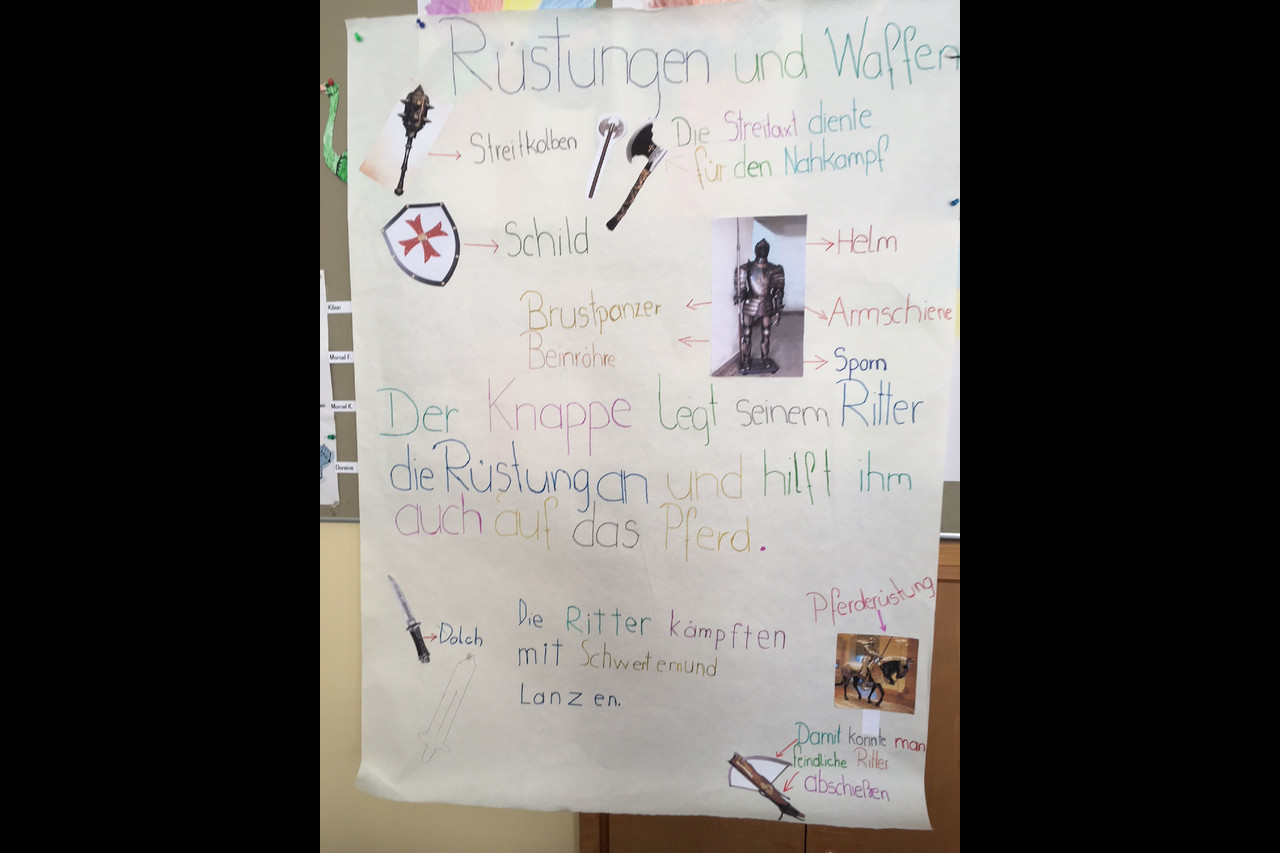 Rüstungen und Waffen
Streitkolben
Die Streitaxt diente
für den Nahkampf
Schild
Helm
Brustpanzer
Armschiene
Beinröhre
Sporn
Der Knappe legt seinem Ritter
die Rüstung an und hilft ihm
auch auf das Pferd.
Pferderüstung
Dolch
Die Ritter kämpften
mit Schwertern und
Lanzen.
Damit konnte man
feindliche Ritter
abschießen
Kilian
Marcel F.
Marcel K.